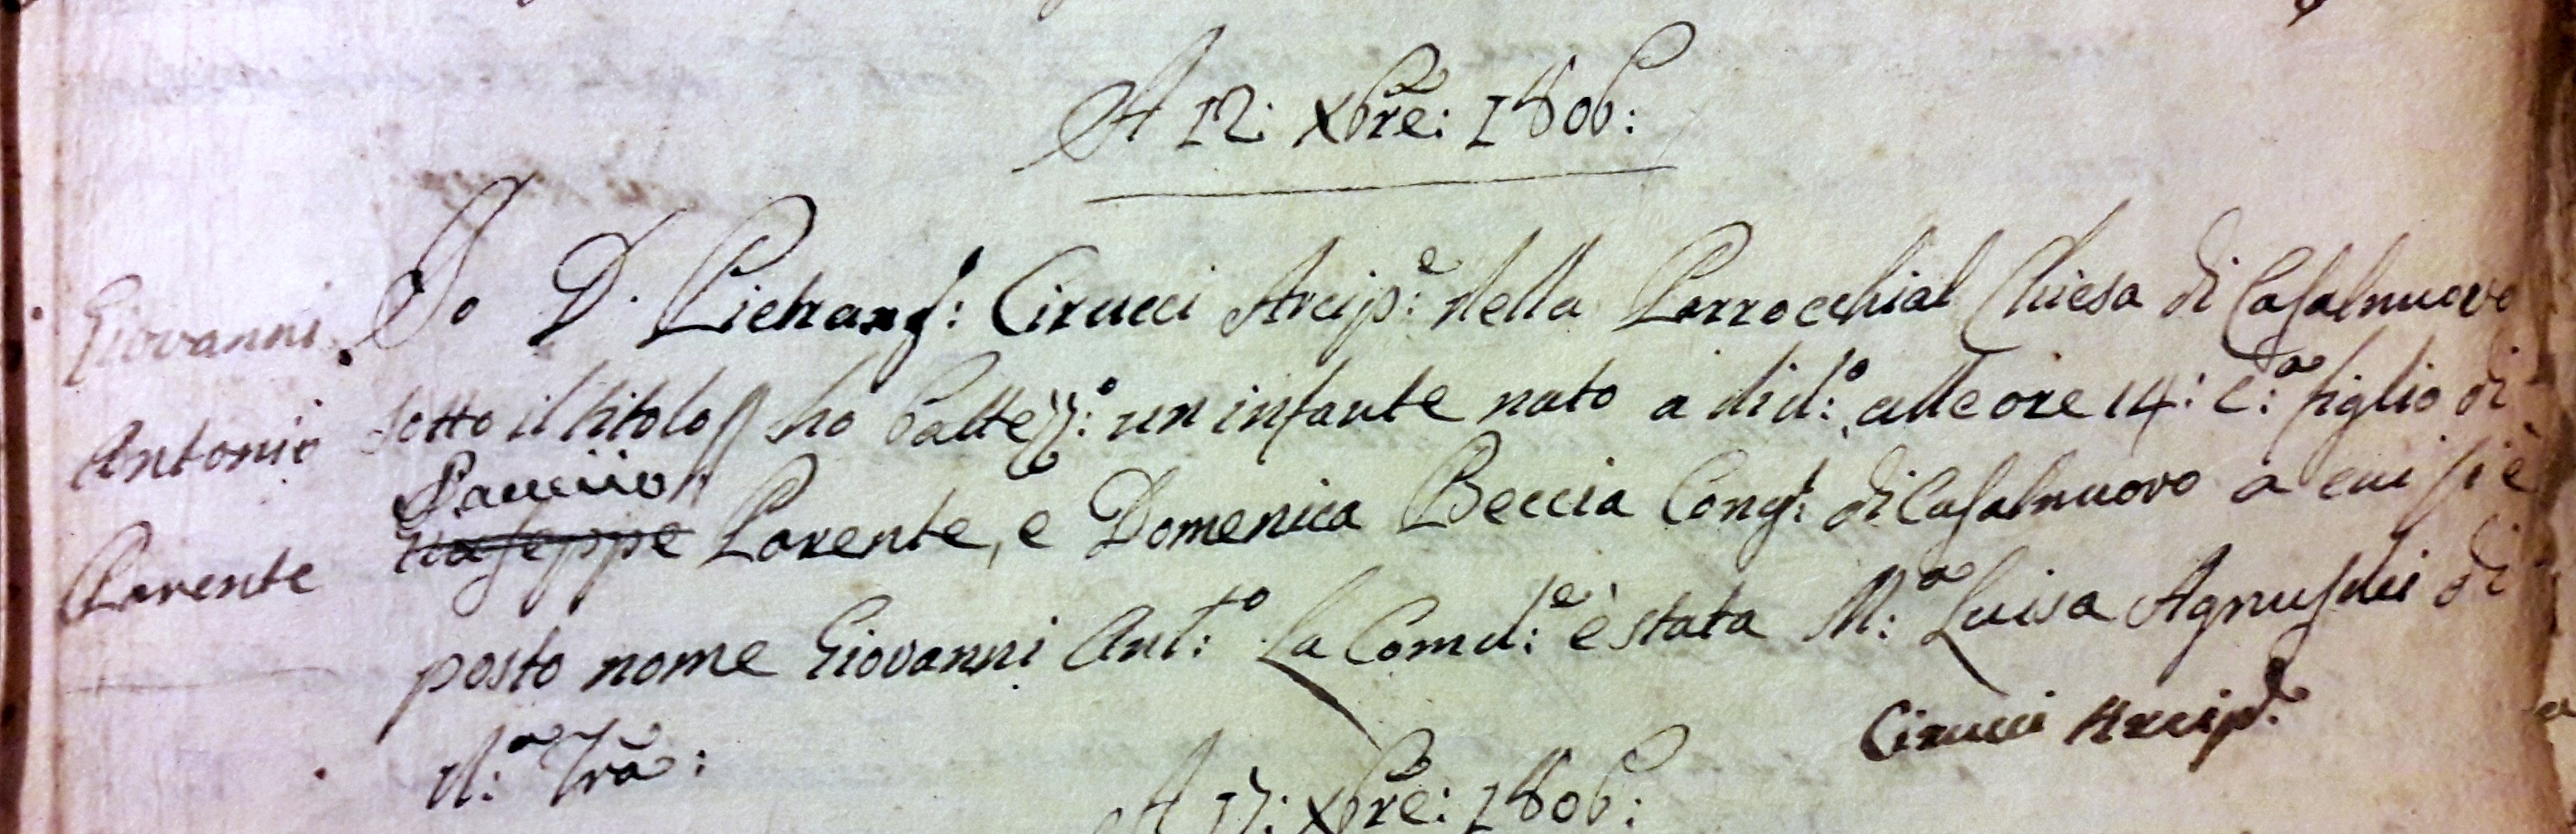 A 12: Xbre: 1806:
Giovanni
Antonio
Parente
Io D. Pietrang: Cirucci Arcip:e della Parrocchial Chiesa di Casalnuovo
sotto il titolo ho battezz:o un infante nato a di d:o alle ore 14: c:a figlio di
Giuseppe Parente, e Domenica Beccia Cong: di Casalnuovo a cui si è
posto nome Giovanni Ant:o La Com:e è stata M:a Luisa Agnusdei di
d:a Trã:
Cirucci Arcip.e
A 17: Xbre: 1806: